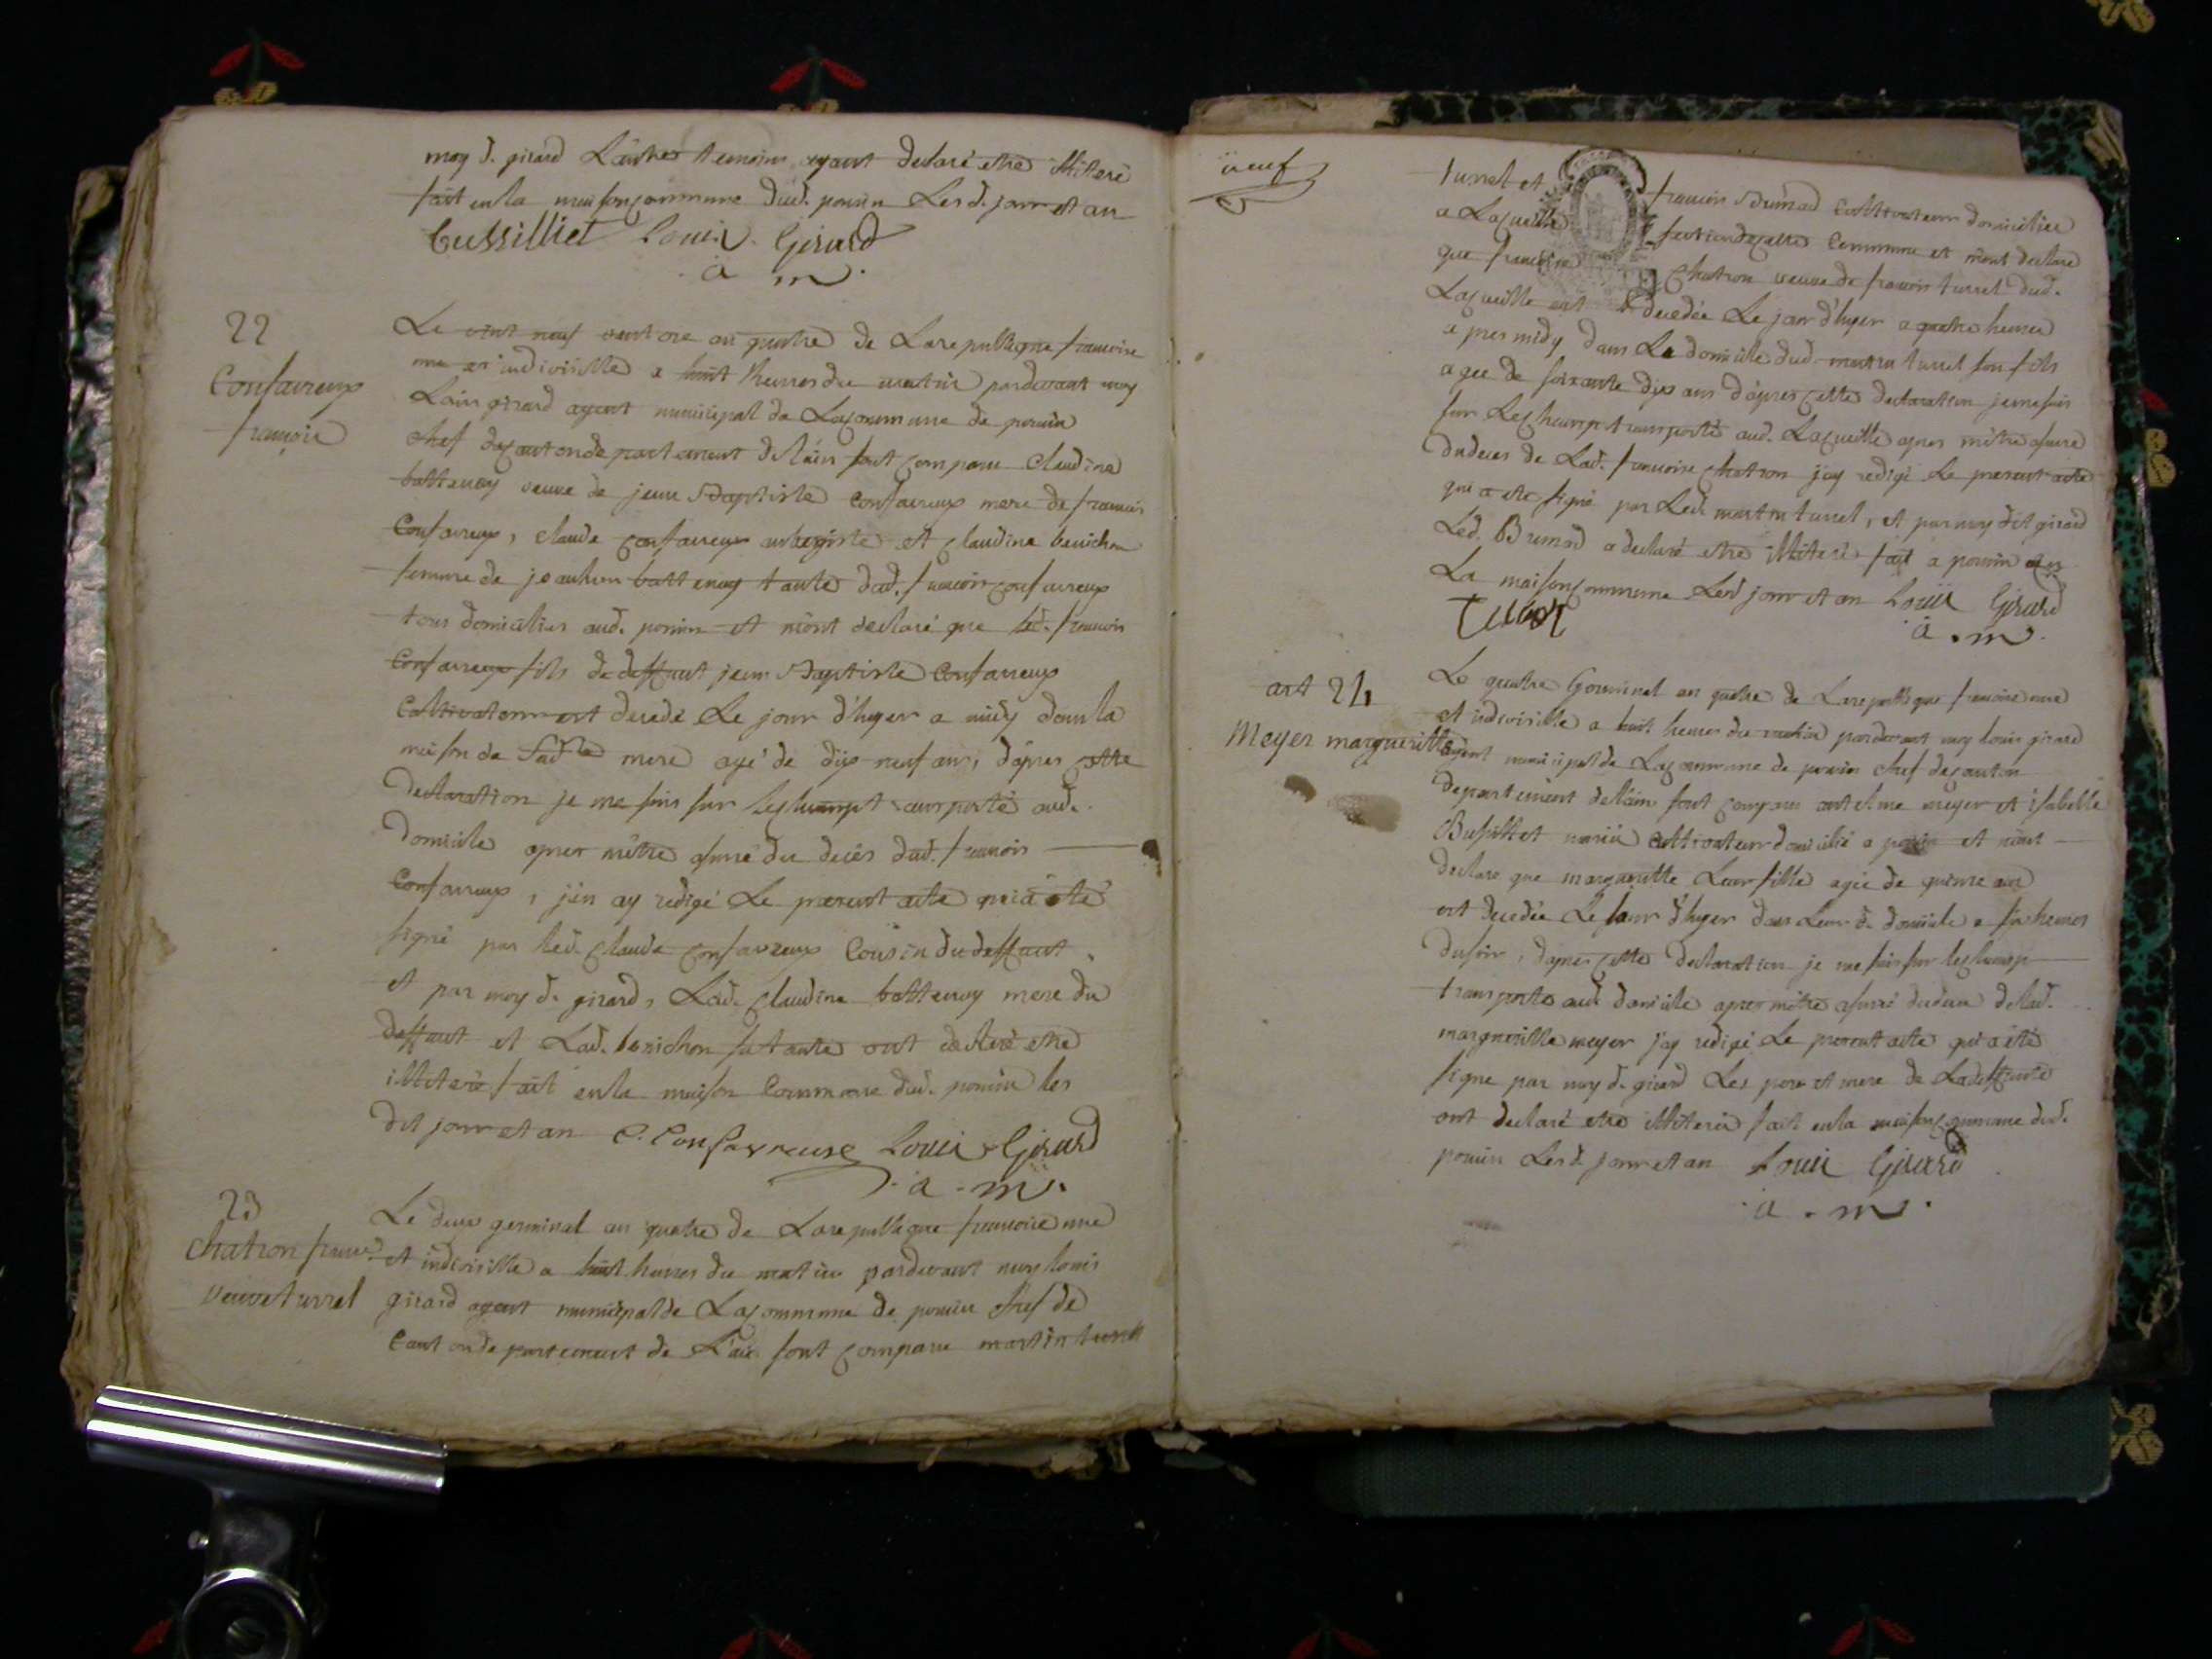 moy d. girard L'autre temoins ayant declaré etre illiteré
fait en la maison commune dud. poncin Les d. jour et an
Cussilliet Louis Girard
a m.
22
Confavreux
françois
Le vint neuf vent ose an quatre de La republique francoise
une et indivisible a huit heures du matin pardevant moy
Louis girard agent municipal de La commune de poncin
chef de canton departement de l'ain sont comparu claudine
battenay veuve de jean Baptiste Confavreux mere de francois
Confavreux, claude confavreux aubergiste et claudine benichon
femme de battenay tante dud. francois confavreux
tous domicilies aud. poncin et m'ont declaré que led. francois
Confavreux fils de deffunt jean Baptiste Confavreux
Cultivateur est decedé Le jour d'hyer a midy dans la
maison de sad. mere agé de dix neuf ans, d'apres cette
declaration je me suis sur le champt transporté aud.
domicile apres m'etre assuré du decès dud. francois
Confavreux, j'en ay redigé Le present acte qui a eté
signé par led. claude confavreux Cousin du deffunt
et par moy d. girard, Lad. claudine battenay mere du
deffunt et Lad. benichon sa tante ont declaré etre
illiteré fait en la maison Commune dud. poncin les
dit jour et an C. Confavreux Louis Girard
a. m.
23
chatron franc.
veuve turrel
Le deux germinal an quatre de La republique francoise une
et indivisible a huit heures du matin pardevant moy louis
girard agent municipal de La commune de poncin chef de
Canton departement de L'ain sont comparu martin turrel
neuf
turrel et francois Brunod Cultivateur domicilies
a La cueille section de cette Commune et m'ont declaré
que francoise Chatron veuve de francois turrel dud.
La cueille est decedée Le jour d'hyer a quatre heures
apres midy dans Le domicile dud. martin turrel son fils
agee de soixante dix ans d'apres cette declaration je me suis
sur Le champt transporté aud. La cueille apres m'etre assuré
du deces de Lad. francoise chatron j'ay redigé Le present acte
qui a ete signé par Led. martin turrel, et par moy dit girard
Led. Brunod a declaré etre illiteré fait a poncin en
La maison commune Les d jour et an Louis Girard
a. m.
art 24
Meyer margueritte
Le quatre Germinal an quatre de La republique francoise une
et indivisible a huit heures du matin pardevant moy louis girard
agent municipal de La commune de poncin chef de canton
departement de l'ain sont comparu antelme meyer et isabelle
mariés cultivateur domicilié a poncin et m'ont
declare que margueritte Leur fille agée de quinze ans
est decedée Le jour d'hyer dans Leur d. domicile a six heures
du soir, d'apres cette declaration je me suis sur le champ
transporte aud. domicile apres m'etre assuré du deces de lad.
margueritte meyer j'ay redigé Le present acte qui a eté
signe par moy d. girard Les pere et mere de La deffunte
ont declaré etre illiteré fait en la maison commune dud.
poncin Les d. jour et an Louis Girard
a. m.